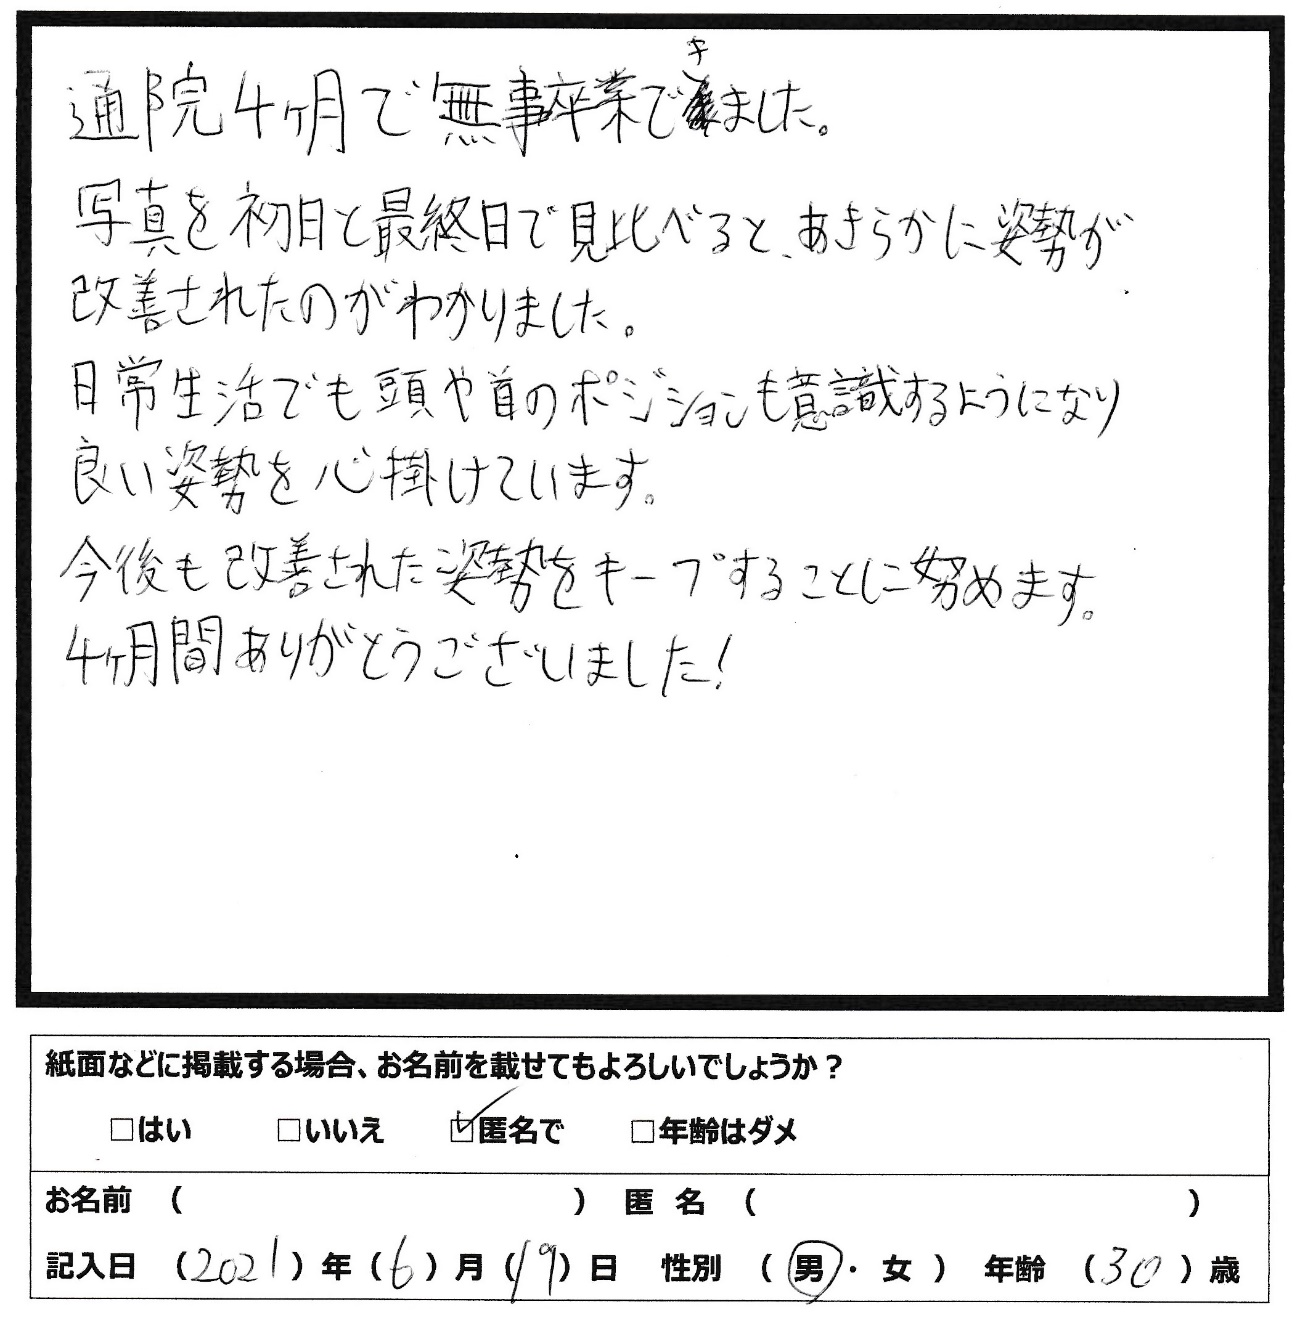 通院4ヶ月で無事卒業できました。
写真を初日と最終日で見比べると、あきらかに姿勢が
改善されたのがわかりました。
日常生活でも頭や首のポジションも意識するようになり
良い姿勢を心掛けています。
今後も改善された姿勢をキープすることに努めます。
4ヶ月間ありがとうございました!
紙面などに掲載する場合、お名前を載せてもよろしいでしょうか？
□はい □いいえ ☑匿名で □年齢はダメ
お名前 （ ） 匿 名 （ ）
記入日 （2021）年（6）月（19）日 性別 （男・女） 年齢 （30）歳